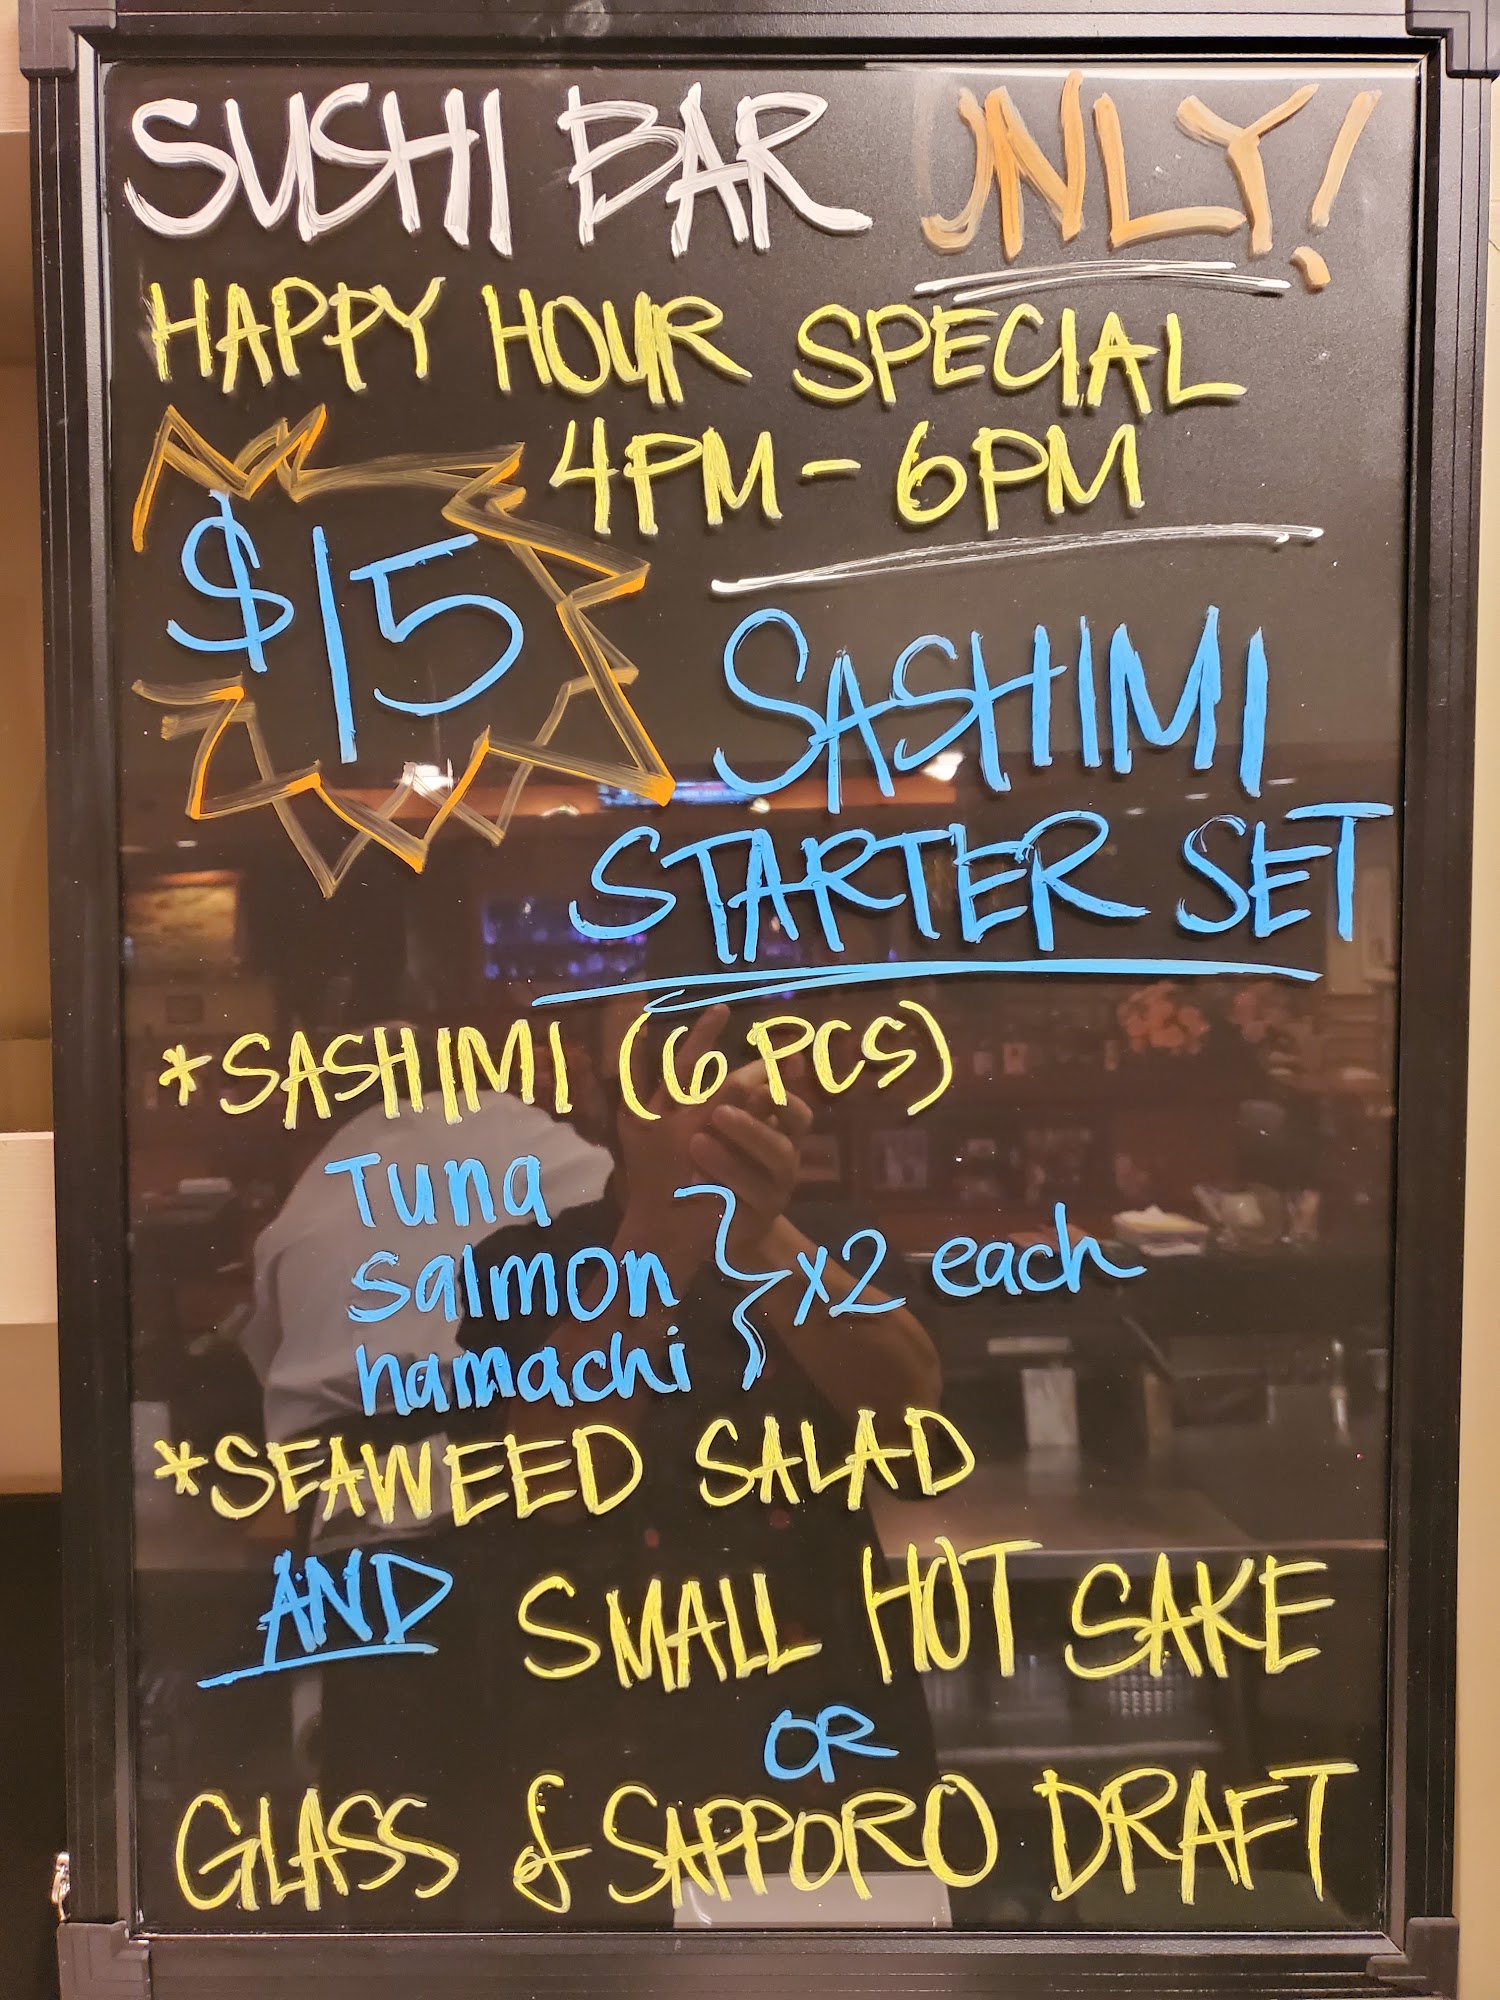 SUSHI BAR ONLY!
HAPPY HOUR SPECIAL
4PM - 6PM
$15
SASHIMI
STARTER SET
*SASHIMI (6 PCS)
Tuna
Salmon } x2 each
hamachi
*SEAWEED SALAD
AND SMALL HOT SAKE
OR
GLASS of SAPPORO DRAFT